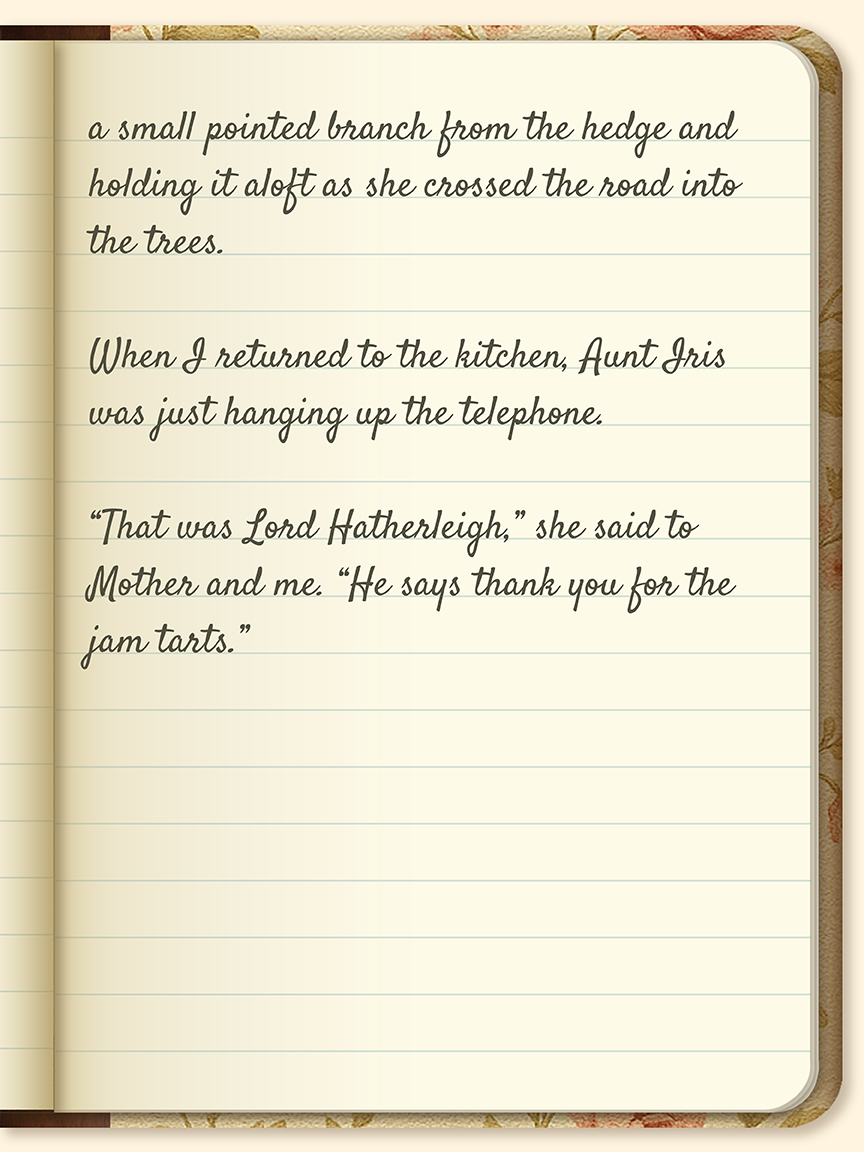 a small pointed branch from the hedge and
holding it aloft as she crossed the road into
the trees.
When I returned to the kitchen, Aunt Iris
was just hanging up the telephone.
“That was Lord Hatherleigh,” she said to
Mother and me. “He says thank you for the
jam tarts.”